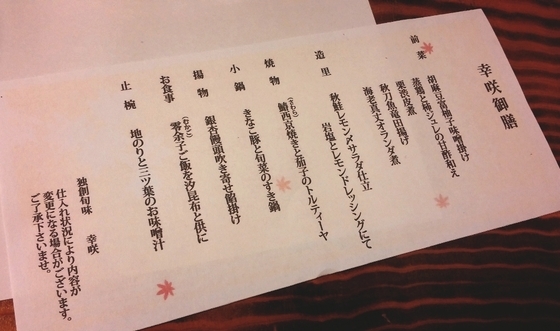 幸咲御膳
前菜 胡麻豆富柚子味噌掛け
蒸鶏と ジュレの甘酢和え
栗渋皮煮
秋刀魚竜田揚げ
海老真丈オランダ煮
造里 秋鮭レモン〆サラダ仕立
岩塩とレモンドレッシングにて
焼物 (さわら)
鰆西京焼きと茄子のトルティーヤ
小鍋 きなこ豚と旬菜のすき鍋
揚物 銀杏饅頭吹き寄せ餡掛け
お食事 (むかご)
零余子ご飯を汐昆布と供に
止椀 地のりと三ツ葉のお味噌汁
独創旬味 幸咲
仕入れ状況により内容が
変更になる場合がございます。
ご了承下さいませ。